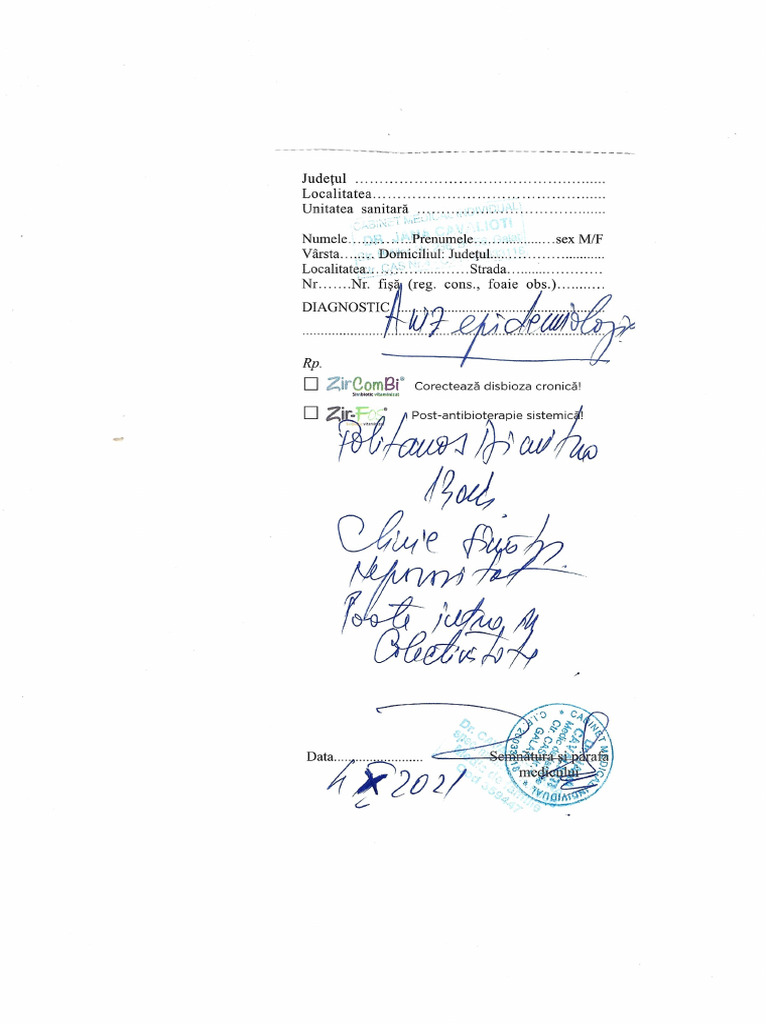 Județul
Localitatea
Unitatea sanitară
CABINET MEDICAL INDIVIDUAL
DR. JANA CAVALIOTI
Numele Prenumele sex M/F
Vârsta Domiciliul: Județul
Localitatea Strada
Nr Nr. fișă (reg. cons., foaie obs.)
DIAGNOSTIC Aviz epidemiologic
Rp.
ZirComBi® Corectează disbioza cronică!
Simbiotic vitaminizat
Zir-Fos® Post-antibioterapie sistemică!
Politanos Dimitra
Clinic sănătos
Neparazitat
Poate intra în
Colectivitate
Data Semnătura și parafa
medicului
4 X 2021
CABINET MEDICAL INDIVIDUAL